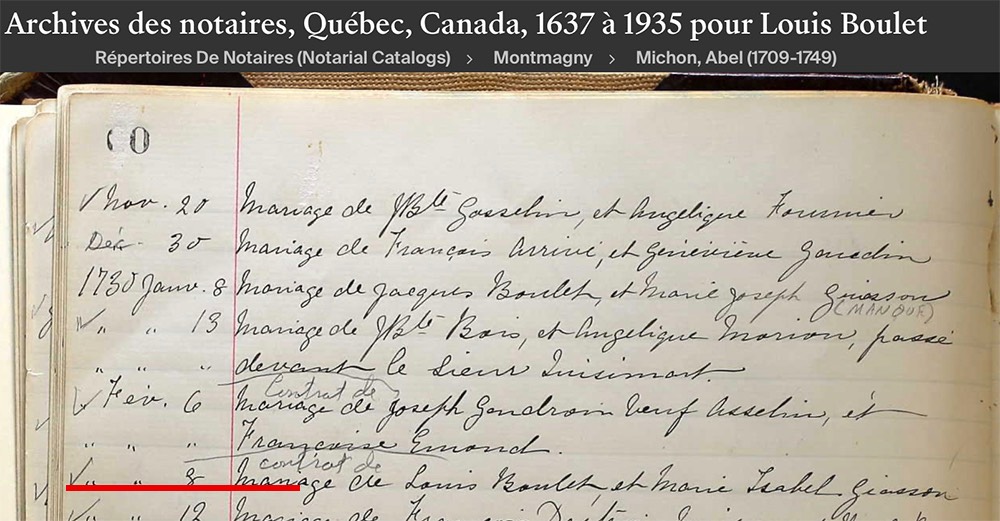 Archives des notaires, Québec, Canada, 1637 à 1935 pour Louis Boulet
Répertoires De Notaires (Notarial Catalogs) > Montmagny > Michon, Abel (1709-1749)
60
✓ Nov. 20 Mariage de JBte Gosselin, et Angelique Fournier
Déc. 30 Mariage de François Arrivé, et Geneviève Gaudin
1730 Janv. 8 Mariage de Jacques Boulet, et Marie Joseph Giasson
(MANQUE)
✓ " " 13 Mariage de JBte Bois, et Angelique Morion, passé
" " " devant le Sieur
Contrat de
✓ Fév. 6 Mariage de Joseph Gendron Veuf Asselin, et
" " " Françoise Emond.
contrat de
✓ " " 8 Mariage de Louis Boulet, et Marie Isabel Giasson
✓ " " 12 Mariage de